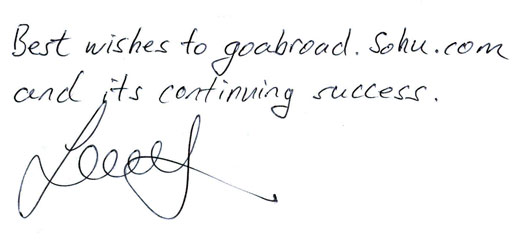 Best wishes to goabroad. Sohu.com
and its continuing success.